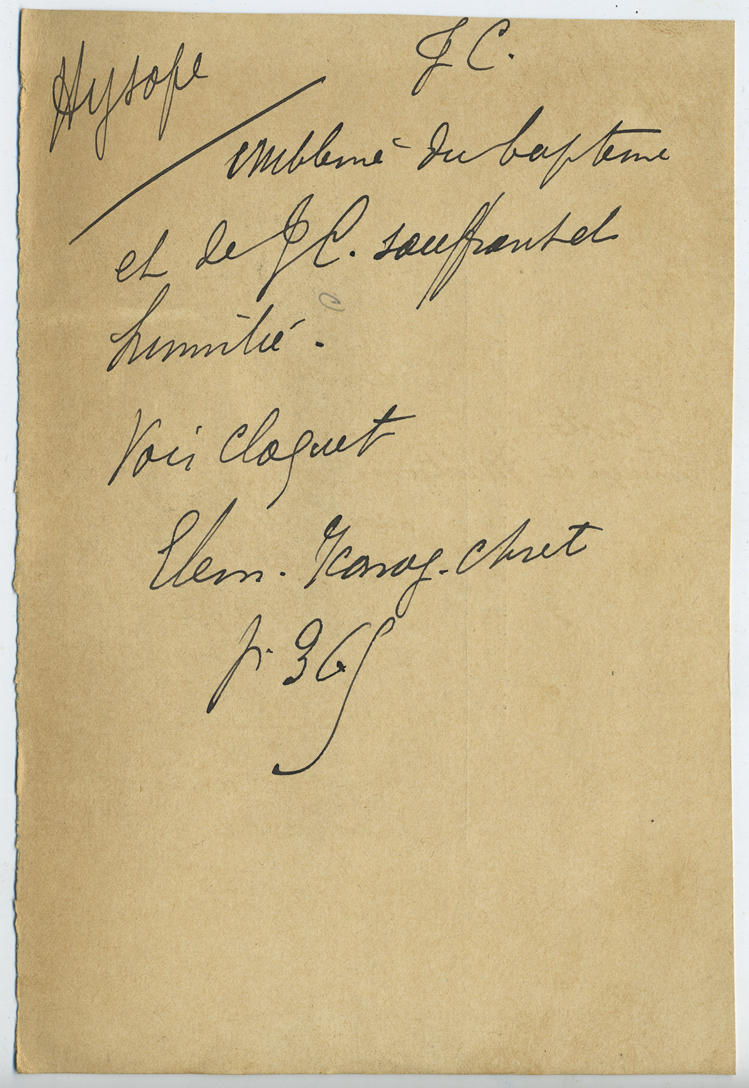 Hysope
J C.
emblemé du bapteme
et de J C. souffrant et
humilié.
Voir Cloquet
Elem. Iconog. chret
p. 365